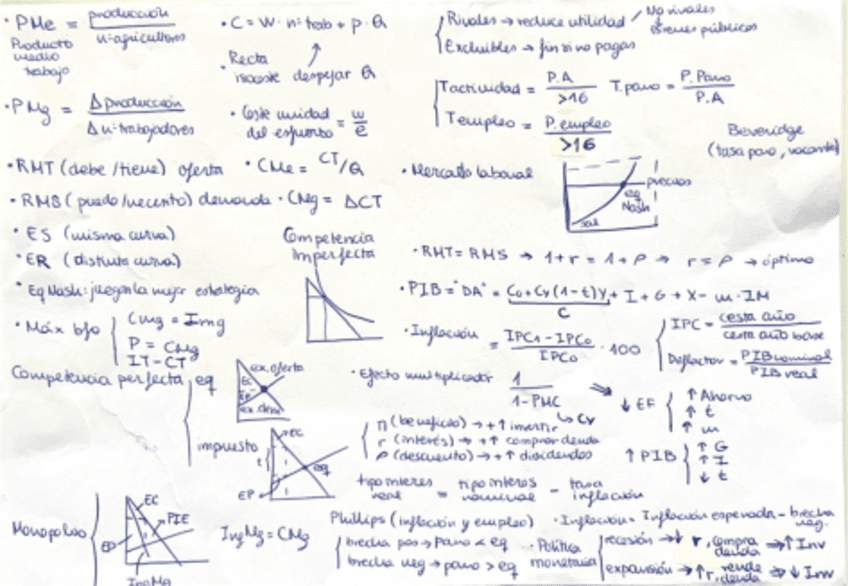 · PMe = producción / nº agricultores
Producto medio trabajo
· PMg = Δ producción / Δ nº trabajadores
· RMT (debe/tiene) oferta
· RMS (puedo/necesito) demanda
· ES (misma curva)
· ER (distinta curva)
· Eq Nash: juegan la mejor estrategia
· Máx bfo { CMg = Img
P = CMg
IT - CT
Competencia perfecta
eq
ex. oferta
EC
EP
ex. dem
impuesto
EC
t
eq
EP
Monopolio
EC
PIE
EP
IngMg
IngMg = CMg
· C = W · nº trab + p · Q
· Recta isocoste despejar Q
· Coste unidad del esfuerzo = w/e
· CMe = CT/Q
· CMg = ΔCT
Competencia Imperfecta
Rivales → reduce utilidad / No rivales
Bienes públicos
Excluibles → fin si no pagas
Tactividad = P.A / >16
T.paro = P.Paro / P.A
Templeo = P.empleo / >16
Beveridge
(tasa paro, vacante)
· Mercado laboral
precios
eq Nash
sal
· RMT = RMS → 1+r = 1+ρ → r = ρ → óptimo
· PIB = "DA" = Co + Cy (1-t) Y + I + G + X - m · IM
C
· Inflación = IPC1 - IPCo / IPCo · 100
IPC = cesta año / cesta año base
Deflactor = PIB nominal / PIB real
· Efecto multiplicador 1 / 1-PMC
→ Cy
⇒ ↓ EF { ↑ Ahorro
↑ t
↑ m
Π (beneficio) → +↑ invertir
r (interés) → +↑ comprar deuda
ρ (descuento) → +↑ dividendos
↑ PIB { ↑ G
↑ I
↓ t
tipo interes real = tipo interes nominal - tasa inflación
Phillips (inflación y empleo)
· Inflación = Inflación esperada - brecha neg.
brecha pos → paro < eq
brecha neg → paro > eq
· Política monetaria
recesión → ↓ r, compra deuda ⇒ ↑ Inv
expansión → ↑ r, vende deuda ⇒ ↓ Inv